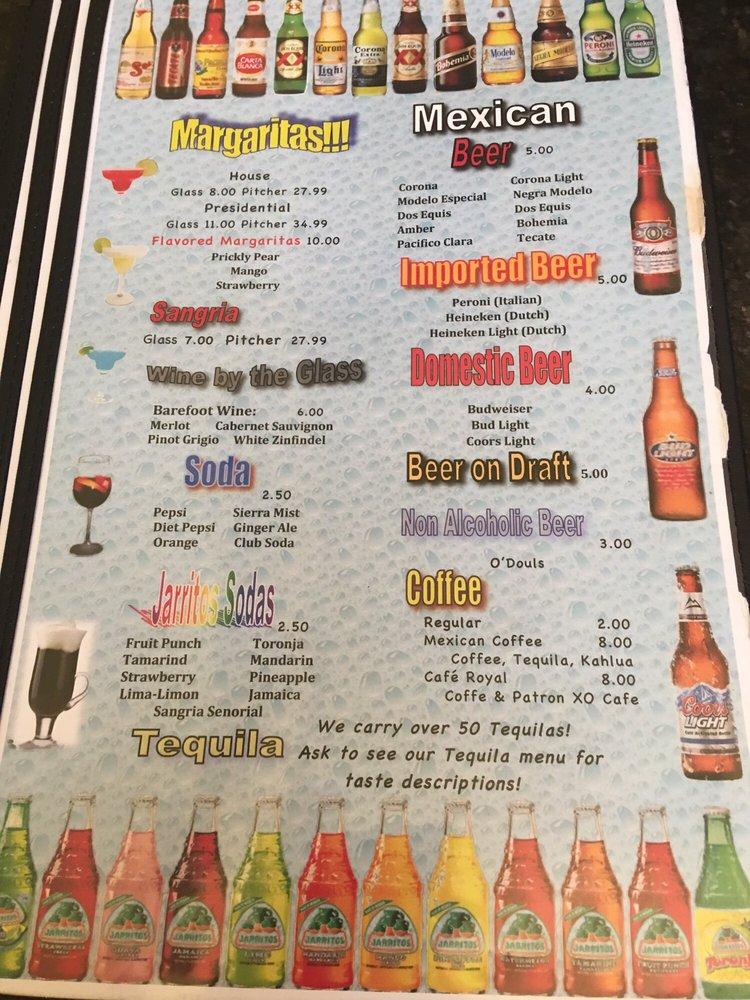 Sol
TECATE
CARTA BLANCA
Corona Light
Corona Extra
XX
Bohemia
Modelo
NEGRA MODELO
PERONI
Heineken
Margaritas!!!
House
Glass 8.00 Pitcher 27.99
Presidential
Glass 11.00 Pitcher 34.99
Flavored Margaritas 10.00
Prickly Pear
Mango
Strawberry
Sangria
Glass 7.00 Pitcher 27.99
Wine by the Glass
Barefoot Wine: 6.00
Merlot Cabernet Sauvignon
Pinot Grigio White Zinfindel
Soda
2.50
Pepsi Sierra Mist
Diet Pepsi Ginger Ale
Orange Club Soda
Jarritos Sodas
2.50
Fruit Punch Toronja
Tamarind Mandarin
Strawberry Pineapple
Lima-Limon Jamaica
Sangria Senorial
Tequila
Mexican
Beer 5.00
Corona Corona Light
Modelo Especial Negra Modelo
Dos Equis Dos Equis
Amber Bohemia
Pacifico Clara Tecate
Imported Beer 5.00
Peroni (Italian)
Heineken (Dutch)
Heineken Light (Dutch)
Domestic Beer
4.00
Budweiser
Bud Light
Coors Light
Beer on Draft 5.00
Non Alcoholic Beer
3.00
O'Douls
Coffee
Regular 2.00
Mexican Coffee 8.00
Coffee, Tequila, Kahlua
Café Royal 8.00
Coffe & Patron XO Cafe
We carry over 50 Tequilas!
Ask to see our Tequila menu for
taste descriptions!
Budweiser
BUD LIGHT
Coors LIGHT
JARRITOS
JARRITOS
JARRITOS
JAMAICA
JARRITOS
JARRITOS
JARRITOS
JARRITOS
JARRITOS
JARRITOS
JARRITOS